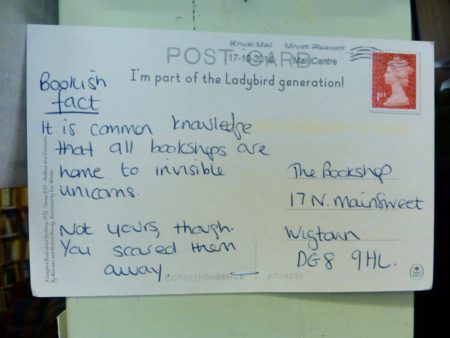 Royal Mail Mount Pleasant
POST CARD
17-10-2014 Mail Centre
I'm part of the Ladybird generation!
1st
Bookish
fact
It is common knowledge
that all bookshops are
home to invisible
unicorns.
Not yours, though.
You scared them
away.
The Bookshop
17 N. Main Street
Wigtown
DG8 9HL.
CORRESPONDENCE
ADDRESS